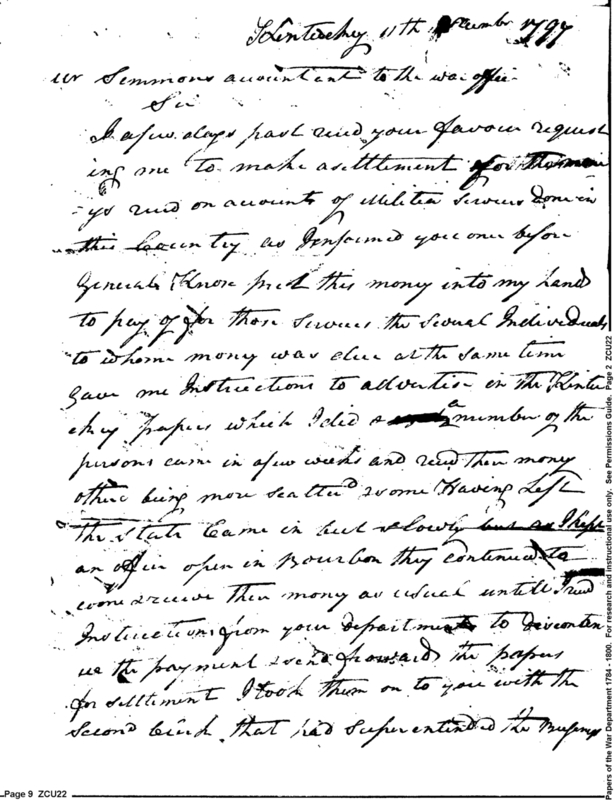 Kentuckey 11th December 1797
Mr Simmons accountant to the war office
Sir
I a few days past recd your favour request
ing me to make a settlement for the mone
ys recd on accounts of Militia services done in
this Country as I informed you once before
General Knox put this money into my hand
to pay of for those services the several Individuals
to whome money was due at the same time
gave me Instructions to advertise in the Kentu
ckey papers which I did & a number of the
persons came in a few weeks and recd their money
others being more scattd & some Having Left
the state Came in but slowly but as I kept
an office open in Bourbon they continued to
come & receive their money as usual untill I recd
Instructions from your department to discontin
ue the payment & send forward the papers
for settlement I took them on to you with the
second Clerk that had superintended the Business
Page 9 ZCU22
Papers of the War Department 1784 - 1800. For research and instructional use only. See Permissions Guide. Page 2 ZCU22